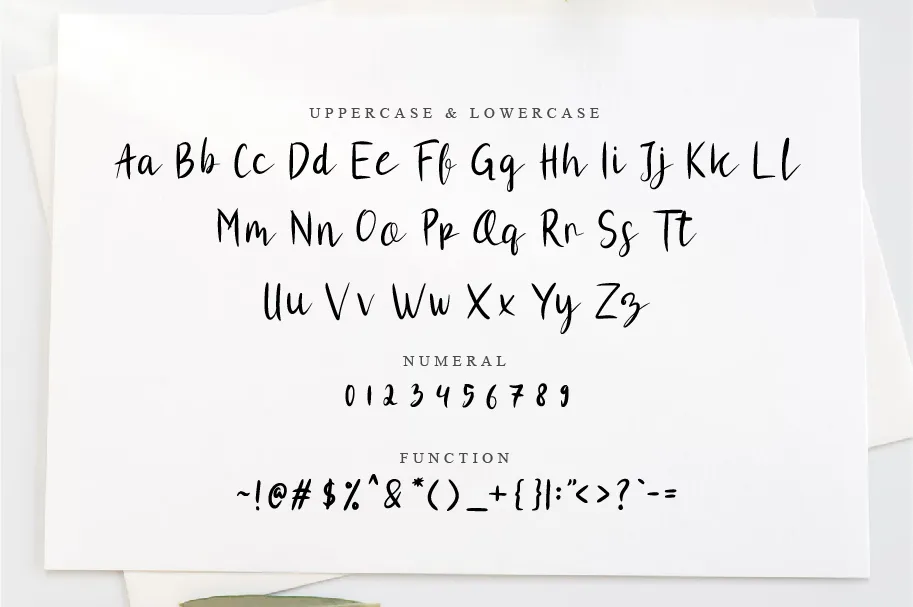 UPPERCASE & LOWERCASE
Aa Bb Cc Dd Ee Ff Gg Hh Ii Jj Kk Ll
Mm Nn Oo Pp Qq Rr Ss Tt
Uu Vv Ww Xx Yy Zz
NUMERAL
0 1 2 3 4 5 6 7 8 9
FUNCTION
~!@# $%^&*()_+{}|:"<>?`-=